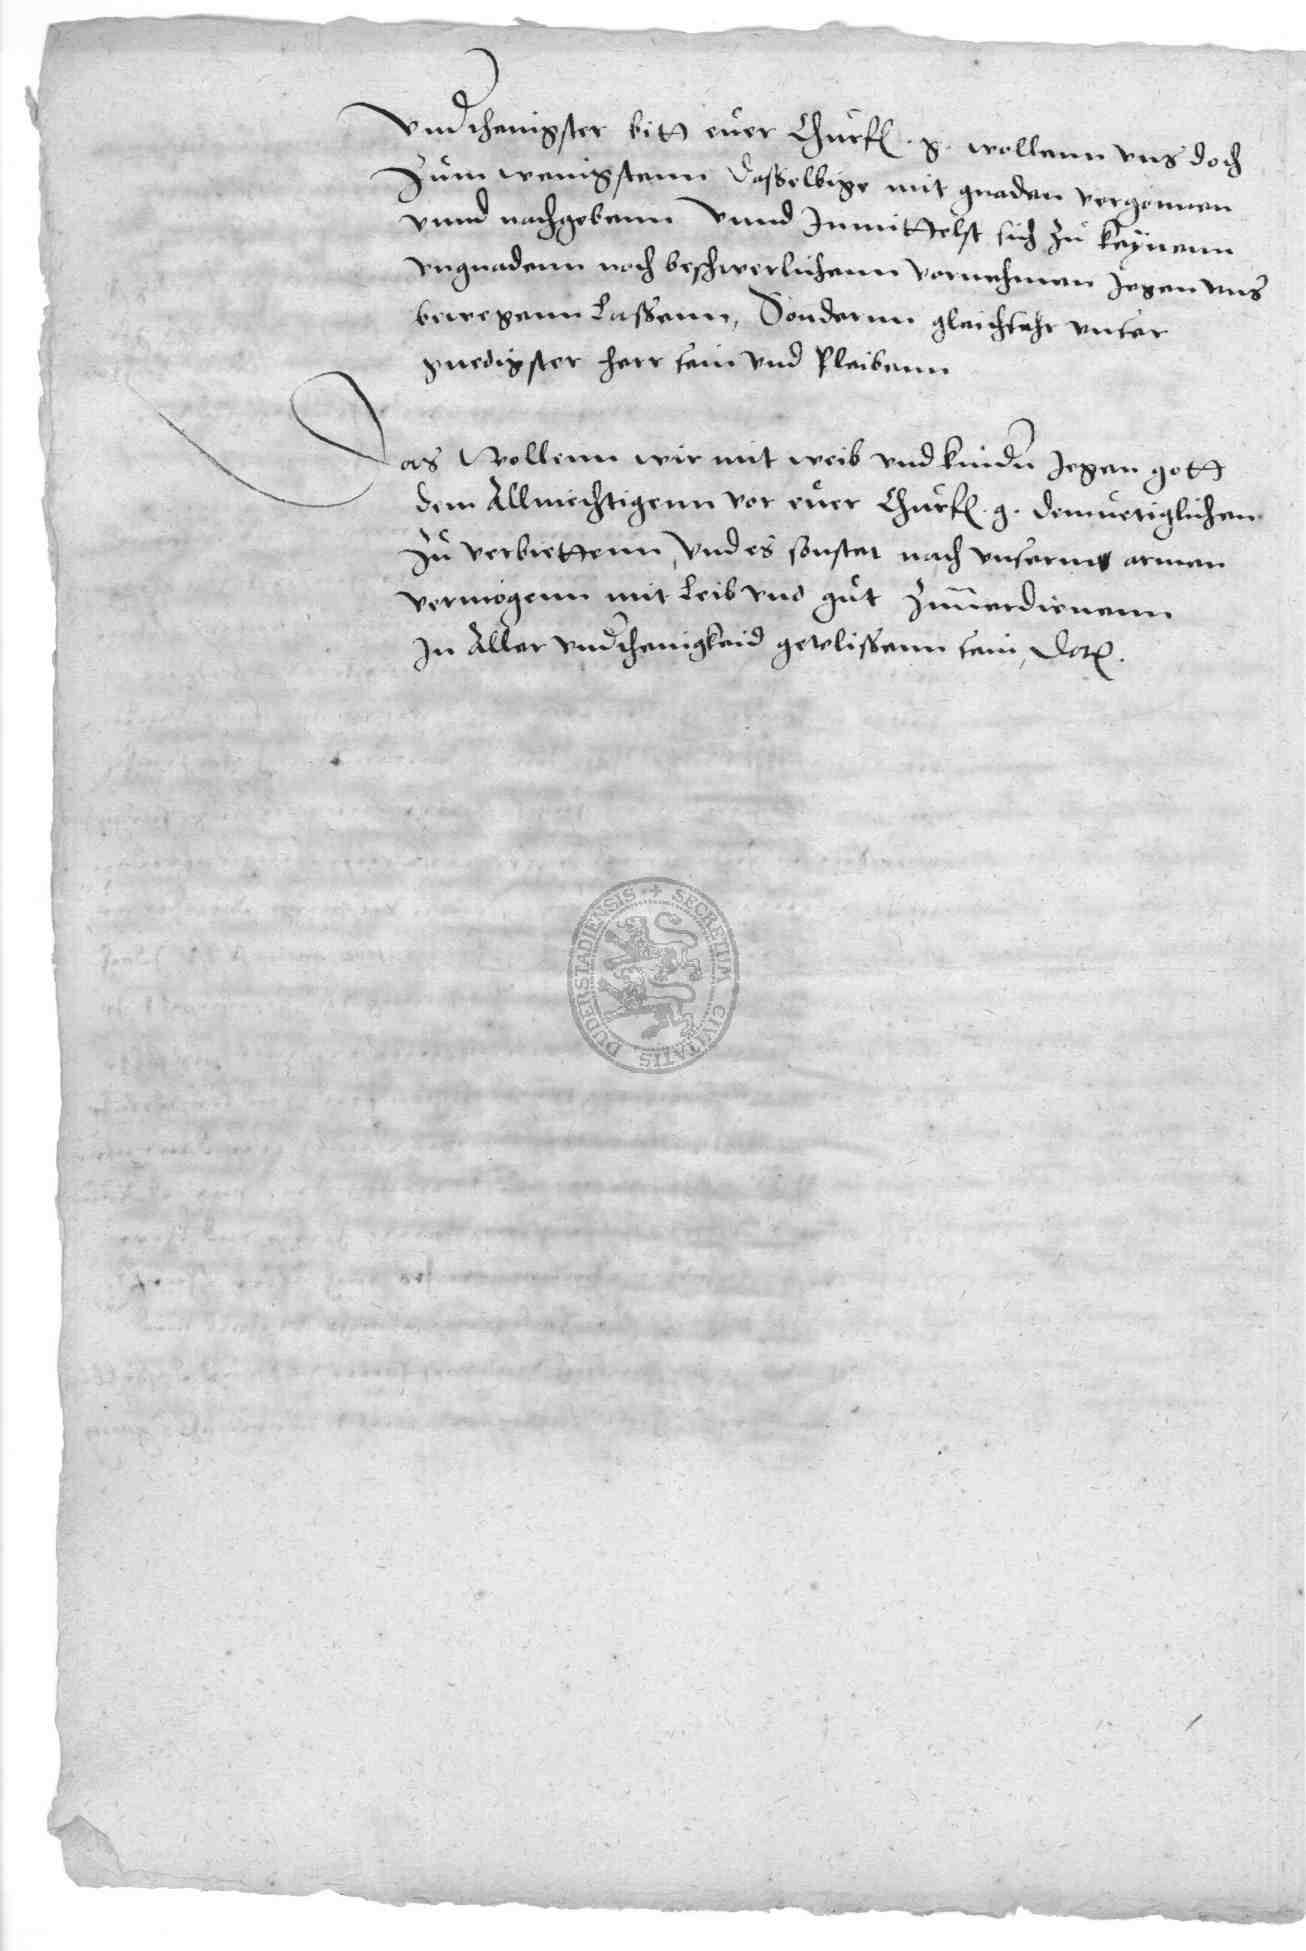 Vnd(er)thenigster bitt euer Churf. g. wollenn vns doch
Zum wenigstenn Dasselbige mit gnaden vergonnen
vnnd nachgebenn Vnnd Inmittelst sich zu keynenn
vngnadenn noch beschwerlichenn vornehmen Jegen vns
bewegenn Lassenn, Sondernn gleichsehr vnser
gnedigster herr sein vnd Pleibenn
Das Wollenn wir mit weib vnd kindn Jegen gott
dem Allmechtigenn vor euer Churf. g. demuetiglichen
Zu verbiettenn, Vnd es sonstet nach vnserm armen
vermogenn mit Leib vnd gut Zuuerdienenn
In Aller vnd(er)thenigkeid geulissenn sein,
SECRETUM CIVITATIS DUDERSTADIENSIS